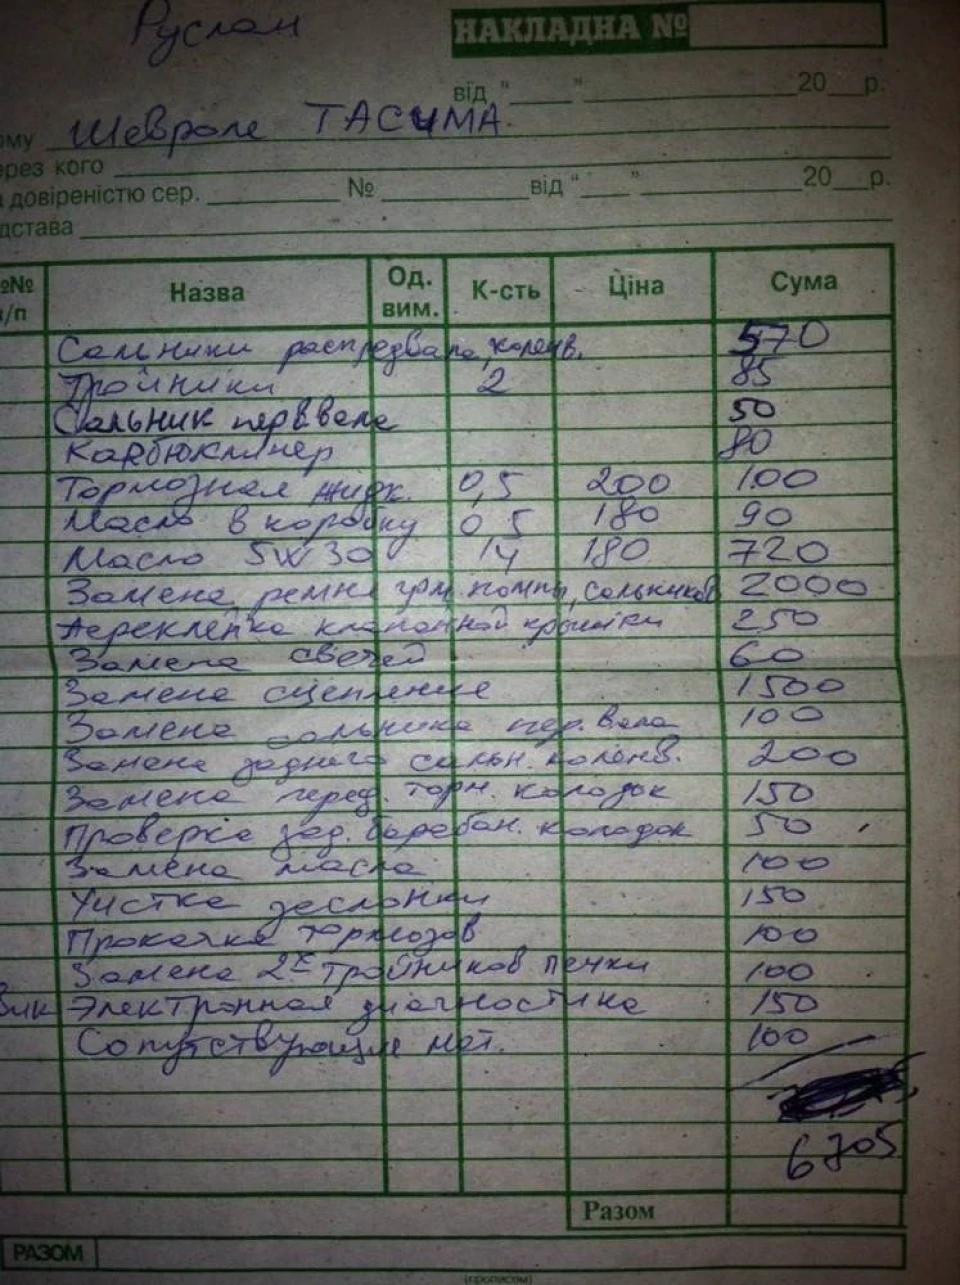 Руслан
НАКЛАДНА №
від "____" ____________ 20__р.
ому Шевроле ТАСУМА
ерез кого
а довіреністю сер. ________ № ________ від "____" ________ 20__р.
дстава
№№ з/п Назва Од. вим. К-сть Ціна Сума
Сальники распредвала, коленв. 570
Тройники 2 85
Сальник перв вала 50
Карбюклинер 80
Тормозная жидк. 0,5 200 100
Масло в коробку 0,5 180 90
Масло 5W30 4 180 720
Замена ремня грм, помпы, сальников 2000
Переклейка клапанной крышки 250
Замена свечей 60
Замена сцепление 1500
Замена сальника пер. вала 100
Замена заднего сальн. коленв. 200
Замена перед. торм. колодок 150
Проверка зад. барабан. колодок 50
Замена масла 100
Чистка заслонки 150
Прокачка тормозов 100
Замена 2х тройников печки 100
Электронная диагностика 150
Сопутствующие мат. 100
6705
Разом
РАЗОМ
(прописом)